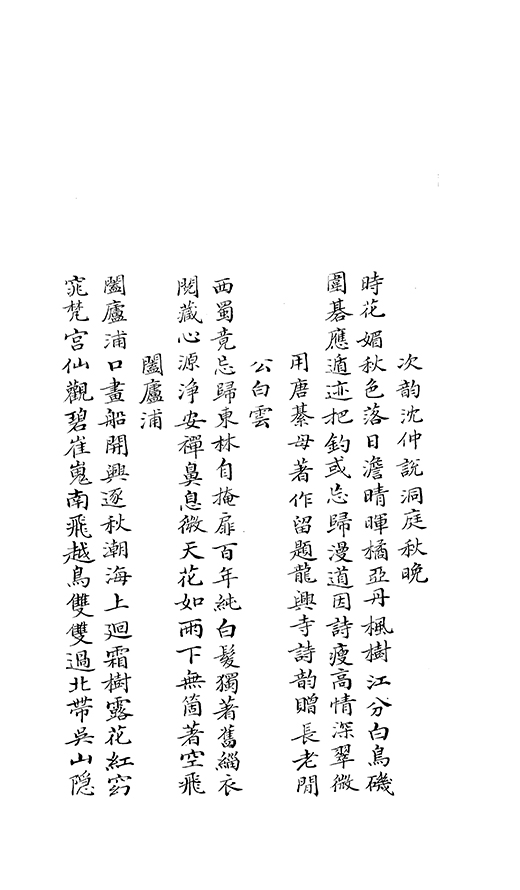 次韵沈仲說洞庭秋晚
時花媚秋色落日澹晴暉橘亞丹楓樹江分白鳥磯
圍碁應遁迹把釣或忘歸漫道因詩瘦高情深翠微
用唐綦毋著作留題龍興寺詩韵贈長老閒
公白雲
西蜀竟忘歸東林自掩扉百年純白髮獨著舊緇衣
閱藏心源淨安禪鼻息微天花如雨下無箇著空飛
闔廬浦
闔廬浦口畫船開興逐秋潮海上廻霜樹露花紅窈
窕梵宮仙觀碧崔嵬南飛越鳥雙雙過北帶吳山隐